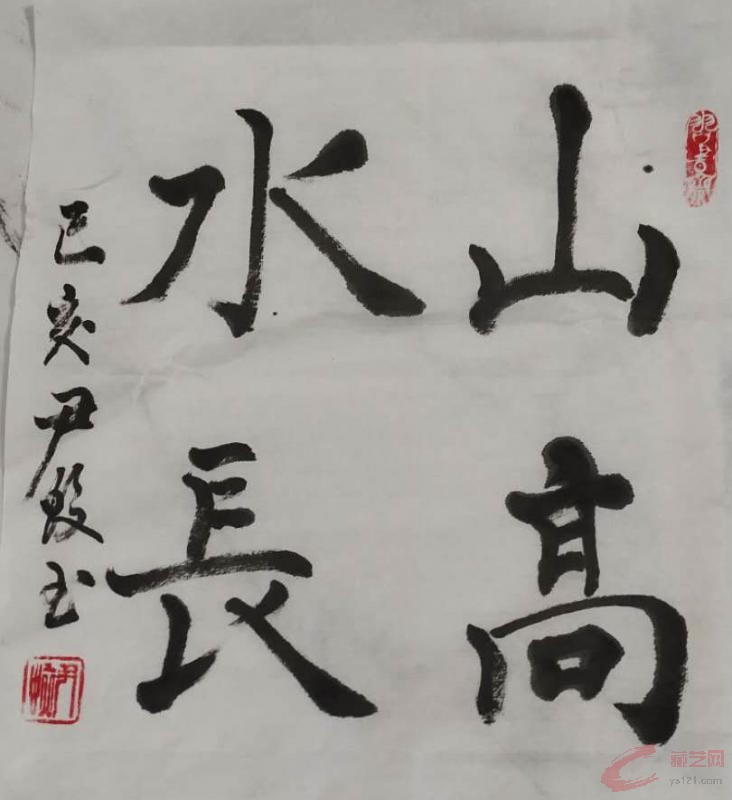 山高
水長
己亥尹毅玉
藏艺网
ys121.com